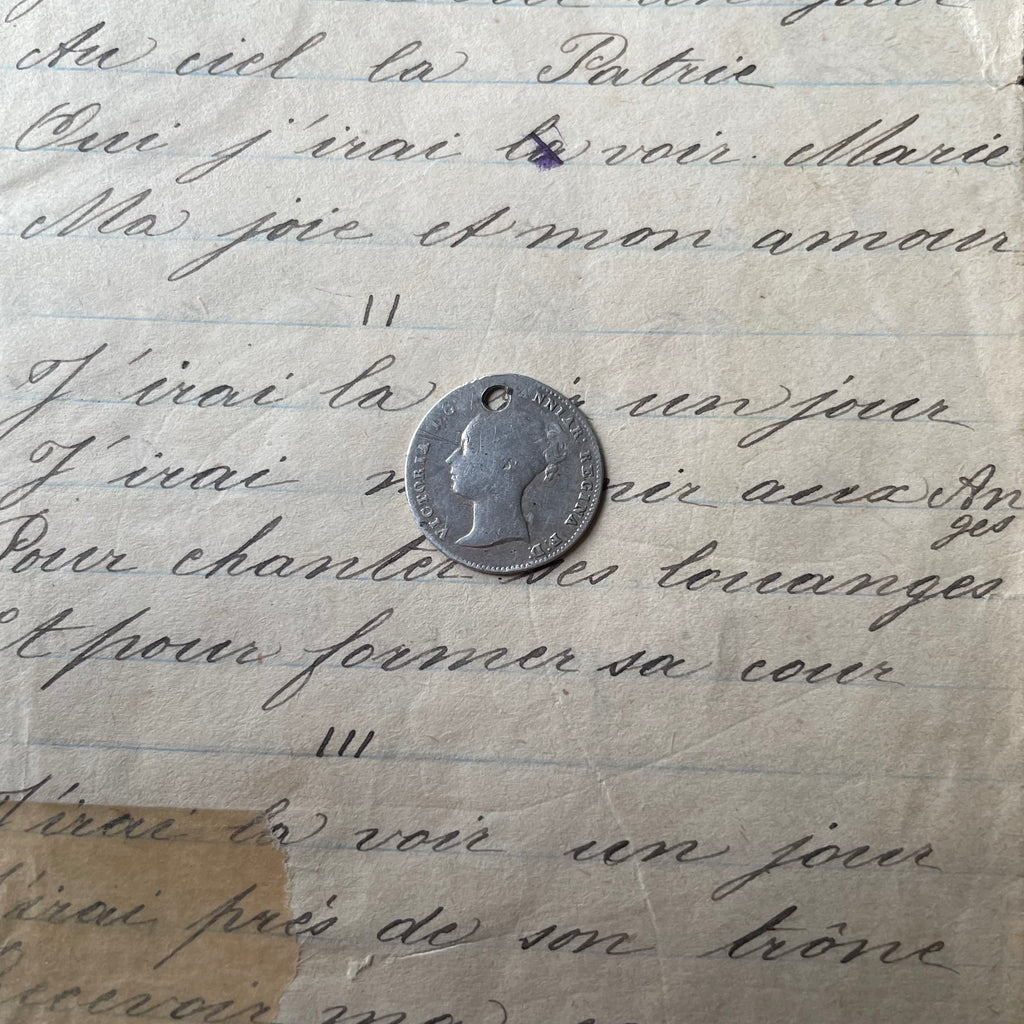 Au ciel la Patrie
Oui j'irai la voir Marie
Ma joie et mon amour
II
J'irai la un jour
J'irai aux Anges
Pour chanter ses louanges
Et pour former sa cour
VICTORIA D:G ANNIAR: REGINA F:D:
III
J'irai la voir un jour
J'irai près de son trône
Recevoir ma